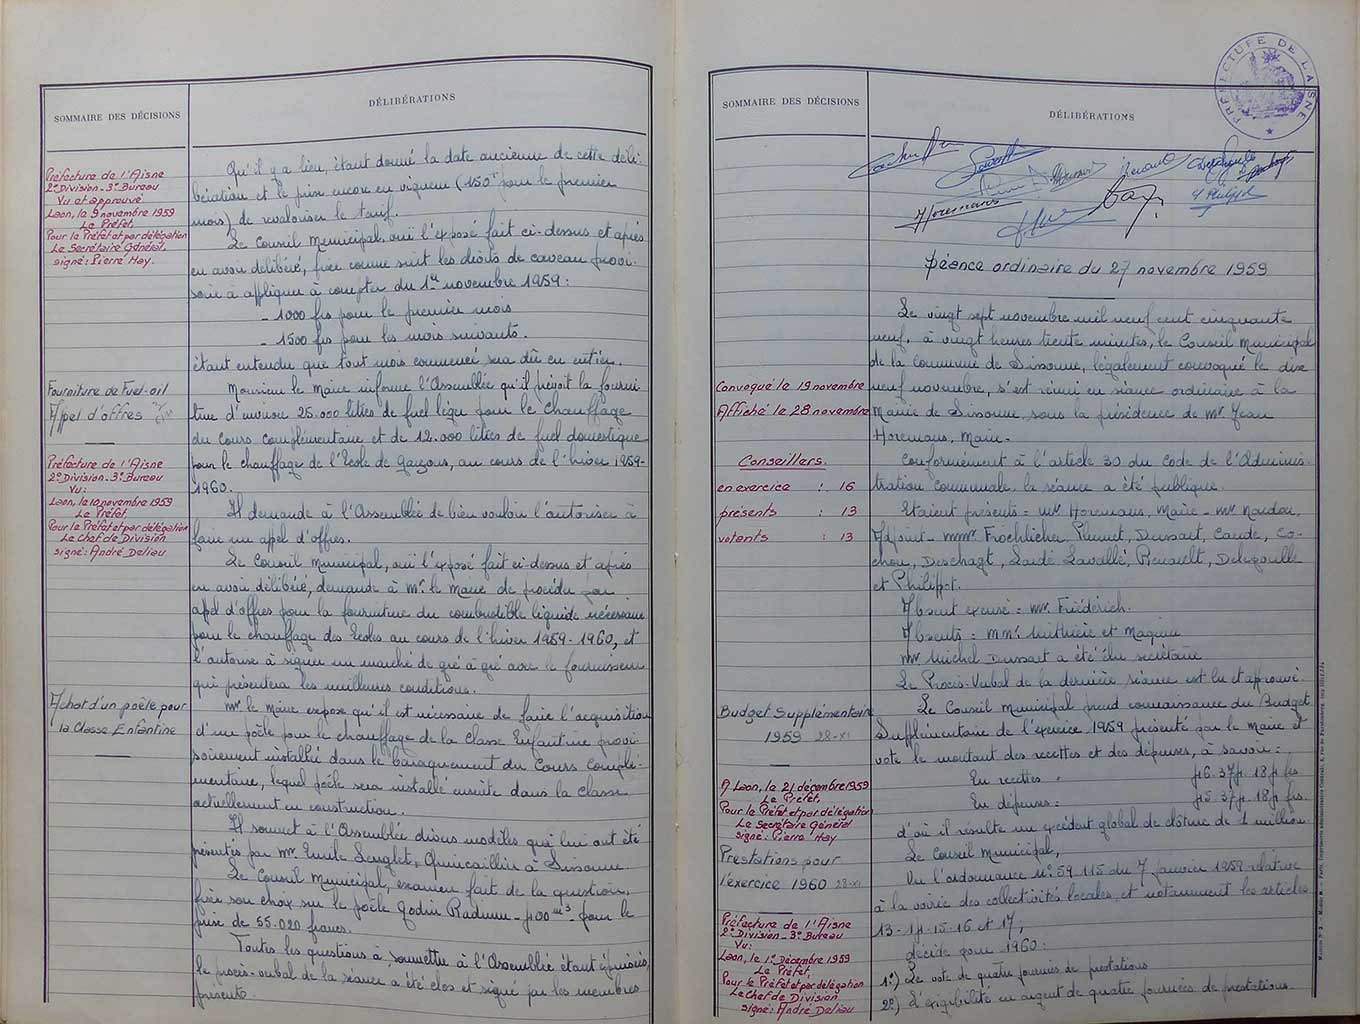 SOMMAIRE DES DÉCISIONS
DÉLIBÉRATIONS
Préfecture de l'Aisne
2e Division - 3e Bureau
Vu et approuvé
Laon, le 9 novembre 1959
Le Préfet,
Pour le Préfet et par délégation
Le Secrétaire Général,
signé: Pierre Hay.
Fourniture de Fuel-oil
Appel d'offres
Préfecture de l'Aisne
2e Division - 3e Bureau
Vu:
Laon, le 10 novembre 1959
Le Préfet
Pour le Préfet et par délégation
Le Chef de Division
signé: André Deliau
Achat d'un poêle pour
la Classe Enfantine
Qu'il y a lieu, étant donné la date ancienne de cette déli
bération et le prix encore en vigueur (150f pour le premier
mois) de revaloriser le tarif.
Le Conseil Municipal, ouï l'exposé fait ci-dessus et après
en avoir délibéré, fixe comme suit les droits de caveau provi-
soire à appliquer à compter du 1er novembre 1959:
- 1000 frs pour le premier mois
- 1500 frs pour les mois suivants.
étant entendu que tout mois commencé sera dû en entier.
Monsieur le Maire informe l'Assemblée qu'il prévoit la fourni
ture d'environ 25.000 litres de fuel léger pour le Chauffage
du Cours Complémentaire et de 12.000 litres de fuel domestique
pour le chauffage de l'École de Garçons, au cours de l'hiver 1959-
1960.
Il demande à l'Assemblée de bien vouloir l'autoriser à
faire un appel d'offres.
Le Conseil Municipal, ouï l'exposé fait ci-dessus et après
en avoir délibéré, demande à Mr. le Maire de procéder par
appel d'offres pour la fourniture du combustible liquide nécessaire
pour le chauffage des Écoles au cours de l'hiver 1959-1960, et
l'autorise à signer un marché de gré à gré avec le fournisseur
qui présentera les meilleures conditions.
Mr le Maire expose qu'il est nécessaire de faire l'acquisition
d'un poêle pour le chauffage de la Classe Enfantine provi-
soirement installée dans le baraquement du Cours Complé-
mentaire, lequel poêle sera installé ensuite dans la Classe
actuellement en construction.
Il soumet à l'Assemblée divers modèles qui lui ont été
présentés par Mr Emile Lenglet, Quincaillier à Sissonne.
Le Conseil Municipal, examen fait de la question,
fixe son choix sur le poêle Godin Radium - 400 m3 - pour le
prix de 55.020 francs.
Toutes les questions à soumettre à l'Assemblée étant épuisées,
le procès-verbal de la séance a été clos et signé par les membres
présents.
SOMMAIRE DES DÉCISIONS
DÉLIBÉRATIONS
PRÉFECTURE DE L'AISNE
Horemans
Renault
Philippot
Séance ordinaire du 27 novembre 1959
Convoqué le 19 novembre
Affiché le 28 novembre
Conseillers.
en exercice : 16
présents : 13
votants : 13
Budget Supplémentaire
1959 28-XI
A Laon, le 21 décembre 1959
Le Préfet,
Pour le Préfet et par délégation
Le Secrétaire Général
signé: Pierre Hay
Prestations pour
l'exercice 1960 28-XI
Préfecture de l'Aisne
2e Division - 3e Bureau
Vu:
Laon, le 1er Décembre 1959
Le Préfet,
Pour le Préfet et par délégation
Le Chef de Division
signé: André Deliau
Le vingt sept novembre mil neuf cent cinquante
neuf, à vingt heures trente minutes, le Conseil Municipal
de la commune de Sissonne, légalement convoqué le dix
neuf novembre, s'est réuni en séance ordinaire à la
Mairie de Sissonne, sous la présidence de Mr. Jean
Horemans, Maire.
Conformément à l'article 30 du Code de l'Adminis
tration communale, la séance a été publique.
Etaient présents: Mr. Horemans, Maire - Mr. Nardou,
Adjoint - MMr. Froehlicher, Plumet, Dussart, Caude, Co-
chon, Deschagt, Laidé Lavallée, Renault, Delegouille
et Philippot.
Absent excusé: Mr. Friédérich.
Absents: MMr. Mithière et Magniez
Mr Michel Dussart a été élu secrétaire
Le Procès-Verbal de la dernière séance est lu et approuvé.
Le Conseil Municipal prend connaissance du Budget
Supplémentaire de l'exercice 1959 présenté par le Maire et
vote le montant des recettes et des dépenses, à savoir:
En recettes: 46.374.184 frs
En dépenses: 45.374.184 frs.
d'où il résulte un excédent global de clôture de 1 million.
Le Conseil Municipal,
Vu l'ordonnance n° 59.115 du 7 janvier 1959 relative
à la voirie des collectivités locales, et notamment les articles
13-14-15-16 et 17,
décide pour 1960:
1°) Le vote de quatre journées de prestations
2°) L'exigibilité en argent de quatre journées de prestations